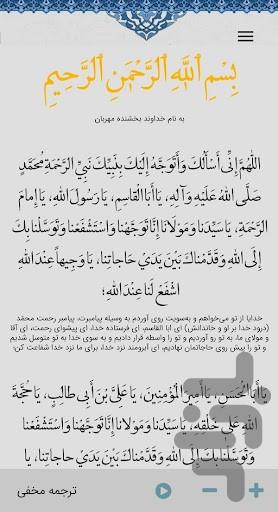 بِسْمِ اللَّهِ الرَّحْمَٰنِ الرَّحِيمِ
به نام خداوند بخشنده مهربان
اللّٰهُمَّ إِنِّي أَسْأَلُكَ وَأَتَوَجَّهُ إِلَيْكَ بِنَبِيِّكَ نَبِيِّ الرَّحْمَةِ مُحَمَّدٍ
صَلَّى اللهُ عَلَيْهِ وَآلِهِ، يَا أَبَا الْقَاسِمِ، يَا رَسُولَ اللهِ، يَا إِمَامَ
الرَّحْمَةِ، يَا سَيِّدَنَا وَمَوْلَانَا إِنَّا تَوَجَّهْنَا وَاسْتَشْفَعْنَا وَتَوَسَّلْنَا بِكَ
إِلَى اللهِ وَقَدَّمْنَاكَ بَيْنَ يَدَيْ حَاجَاتِنَا، يَا وَجِيهاً عِنْدَ اللهِ
اشْفَعْ لَنَا عِنْدَ اللهِ؛
خدایا از تو می‌خواهم و به‌سویت روی آوردم به وسیله پیامبرت، پیامبر رحمت محمّد
(درود خدا بر او و خاندانش) ای ابا القاسم، ای فرستاده خدا، ای پیشوای رحمت، ای آقا
و مولای ما، به تو روی آوردیم و تو را واسطه قرار دادیم و به سوی خدا به تو متوسل شدیم
و تو را پیش روی حاجاتمان نهادیم، ای آبرومند نزد خدا، برای ما نزد خدا شفاعت کن؛
يَا أَبَا الْحَسَنِ، يَا أَمِيرَ الْمُؤْمِنِينَ، يَا عَلِيَّ بْنَ أَبِي طَالِبٍ، يَا حُجَّةَ
اللهِ عَلَى خَلْقِهِ، يَا سَيِّدَنَا وَمَوْلَانَا إِنَّا تَوَجَّهْنَا وَاسْتَشْفَعْنَا
وَتَوَسَّلْنَا بِكَ إِلَى اللهِ وَقَدَّمْنَاكَ بَيْنَ يَدَيْ حَاجَاتِنَا، يَا
ترجمه مخفی